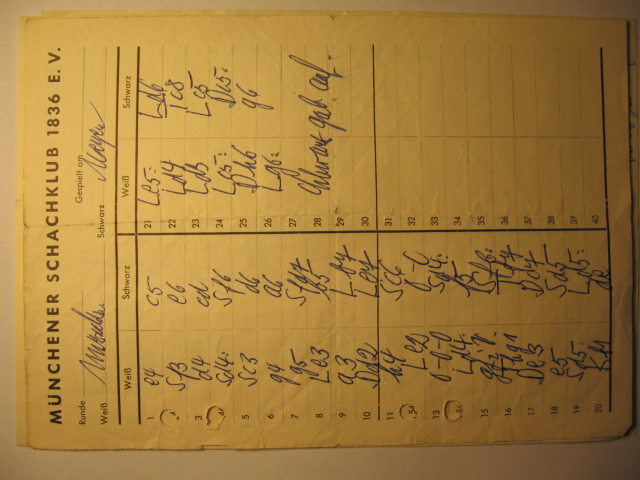 MÜNCHENER SCHACHKLUB 1836 E. V.
Runde Gespielt am
Weiß Schwarz
Weiß Schwarz Weiß Schwarz
1 e4 c5 21 Le5: Ld6
Sf3 e6 22 Ld4
3 d4 cd 23 Ld3 Le5
Sd4: Sf6 24 Le5: De5:
5 Sc3 d6 25 Dh6 g6
6 g4 a6 26 Lg6:
7 g5 Sfd7 27
8 Le3 b5 28 Schwarz gab auf.
9 a3 Lb7 29
10 Dd2 Le7 30
11 h4 Sc6 31
Le2 0-0 32
13 0-0-0 Sd4: 33
Ld4: 34
15 i.p. Sf6: 35
16 Thg1 36
17 De3 Dd7 37
18 e5 Sd5 38
19 Sd5: Ld5: 39
20 Kb1 de 40